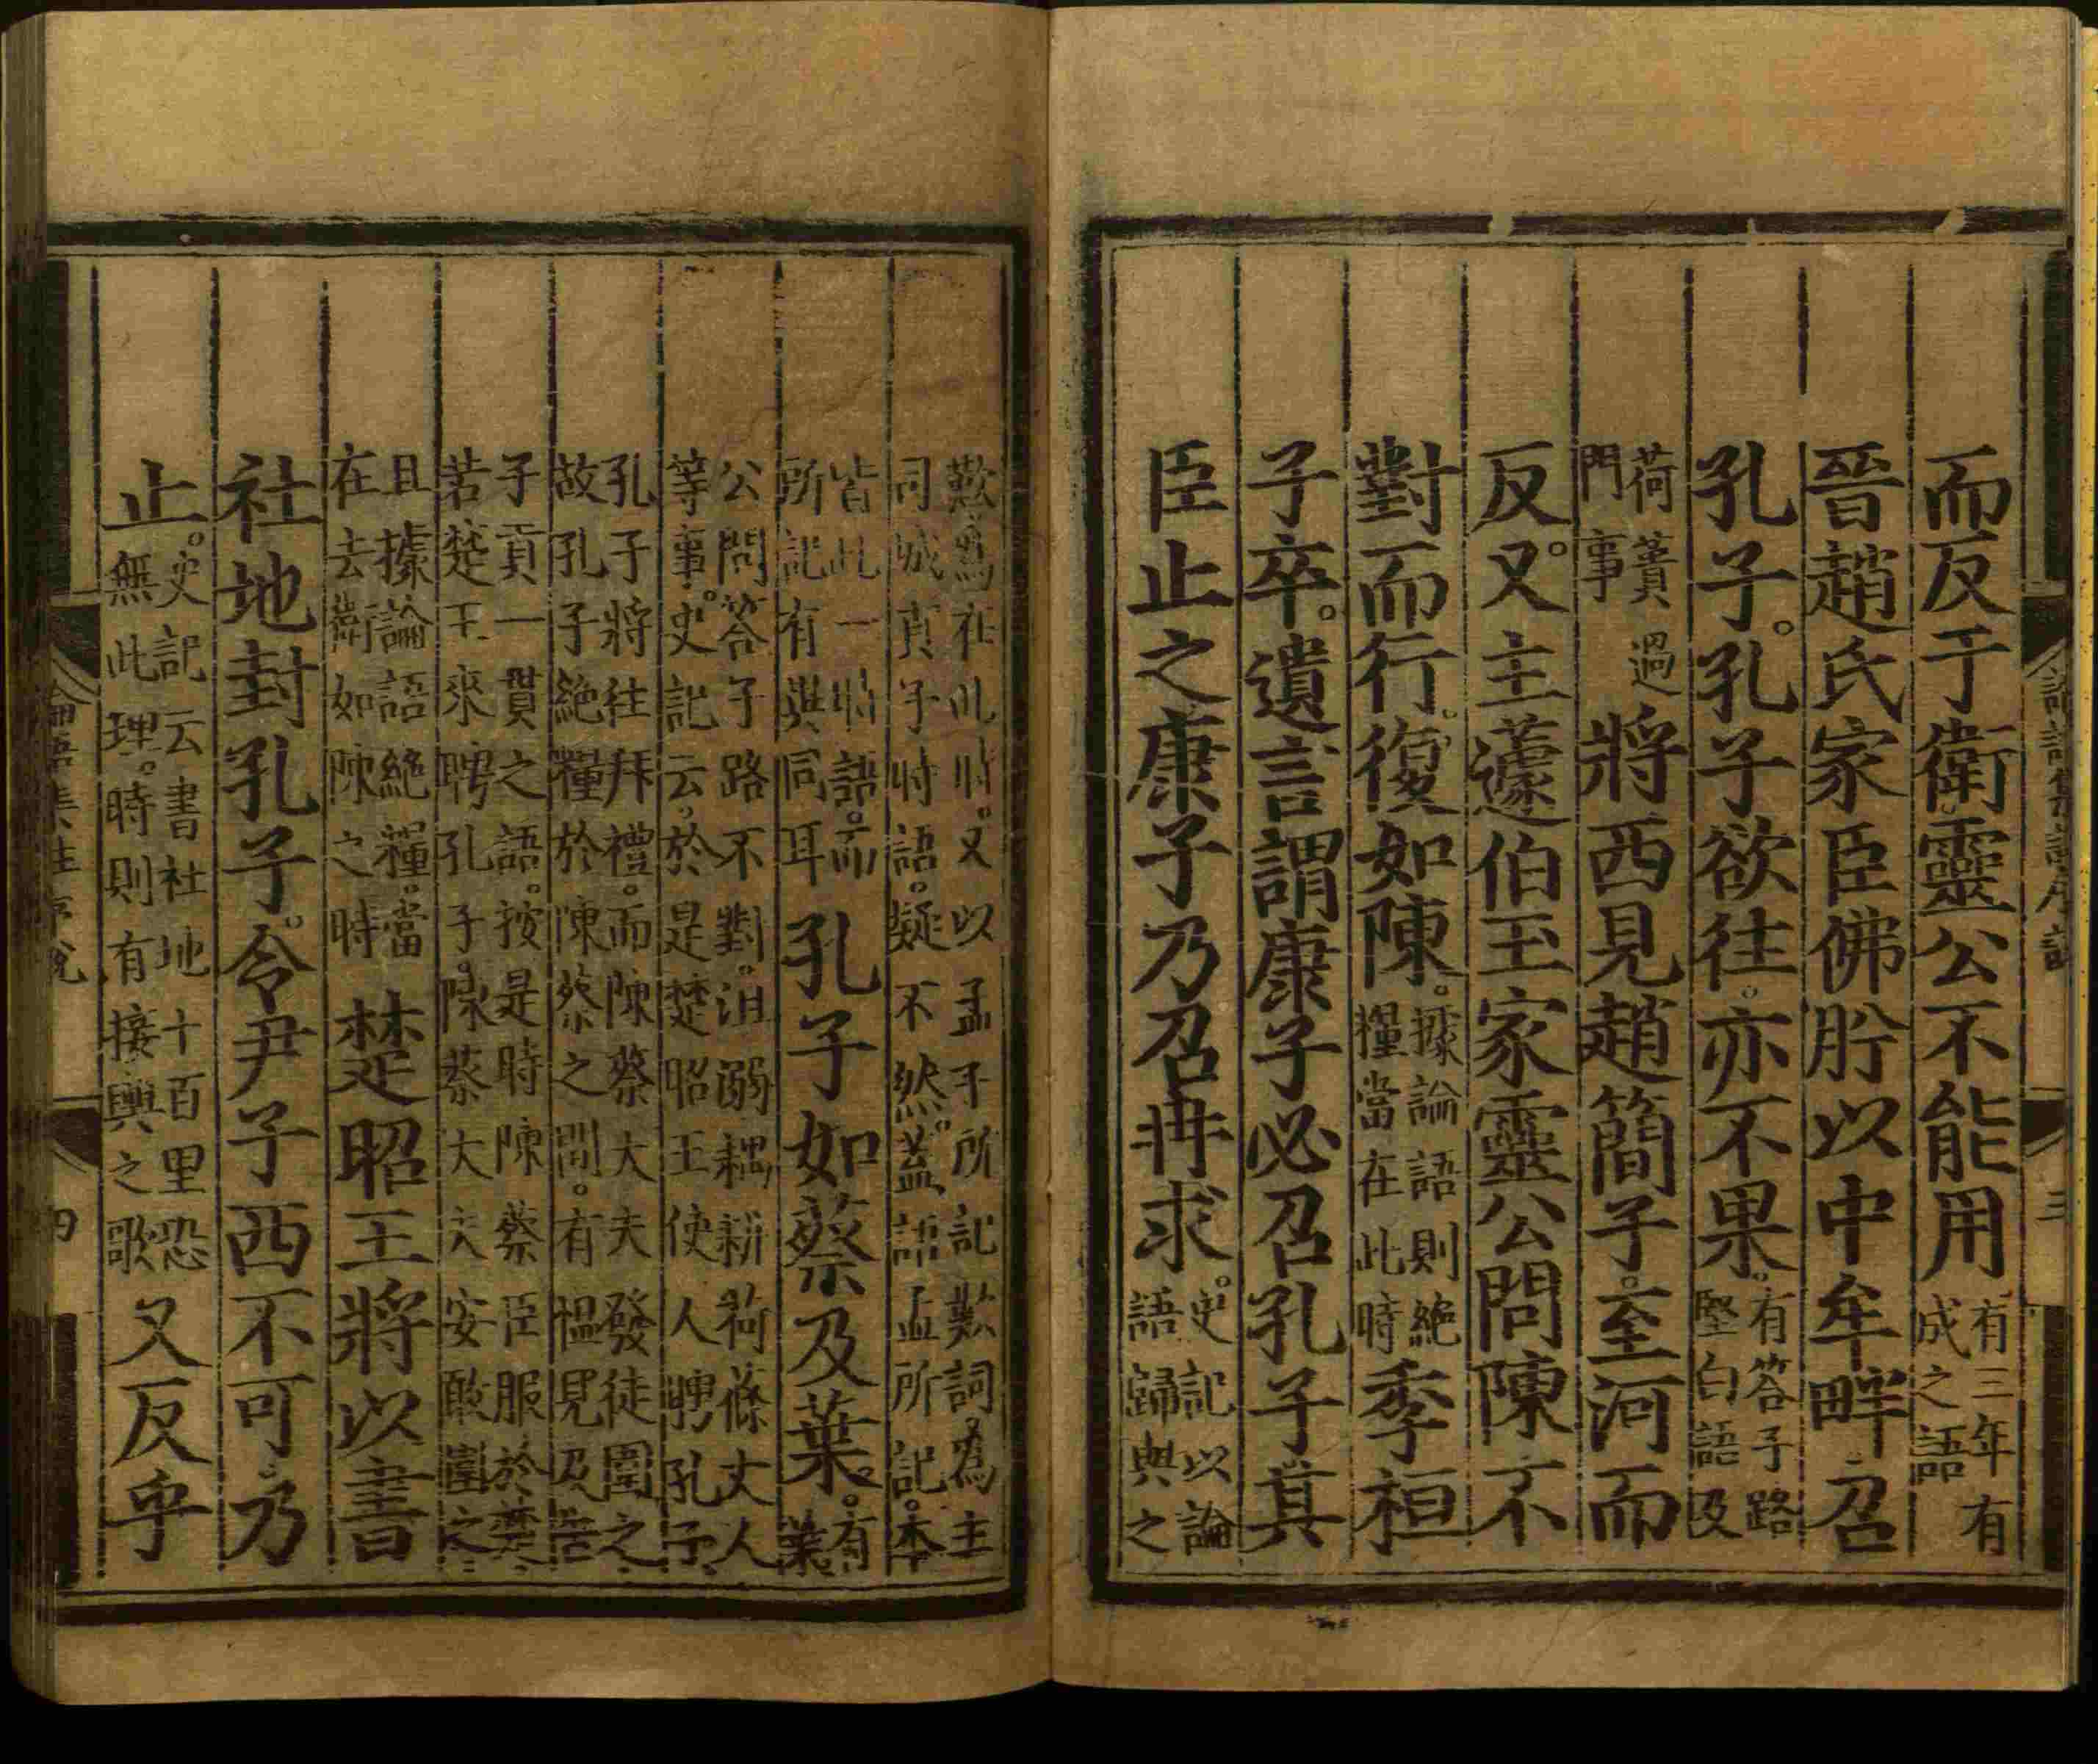 而反于衛靈公不能用有三年有成之語
晉趙氏家臣佛肸以中牟畔召
孔子孔子欲往亦不果有答子路堅白語及
荷蕢過門事將西見趙簡子至河而
反又主蘧伯玉家靈公問陳不
對而行復如陳據論語則絶糧當在此時季桓
子卒遺言謂康子必召孔子其
臣止之康子乃召冉求史記以論語歸與之
歎爲在此時又以孟子所記歎詞爲主司城貞子時語疑不然蓋語孟所記本
皆此一時語而所記有異同耳孔子如蔡及葉有葉
公問答子路不對沮溺耦耕荷蓧丈人等事史記云於是楚昭王使人聘孔子
孔子將往拜禮而陳蔡大夫發徒圍之故孔子絶糧於陳蔡之間有慍見及告
子貢一貫之語按是時陳蔡臣服於楚若楚王來聘孔子陳蔡大夫安敢圍之
且據論語絶糧當在去衛如陳之時楚昭王將以書
社地封孔子令尹子西不可乃
止史記云書社地七百里恐無此理時則有接輿之歌又反乎
論語集註序說
三
論語集註序說
四